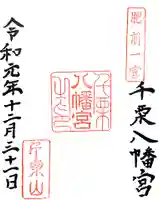 肥前一宮
千栗八幡宮
千栗
八幡宮
之印
令和元年十二月三十一日